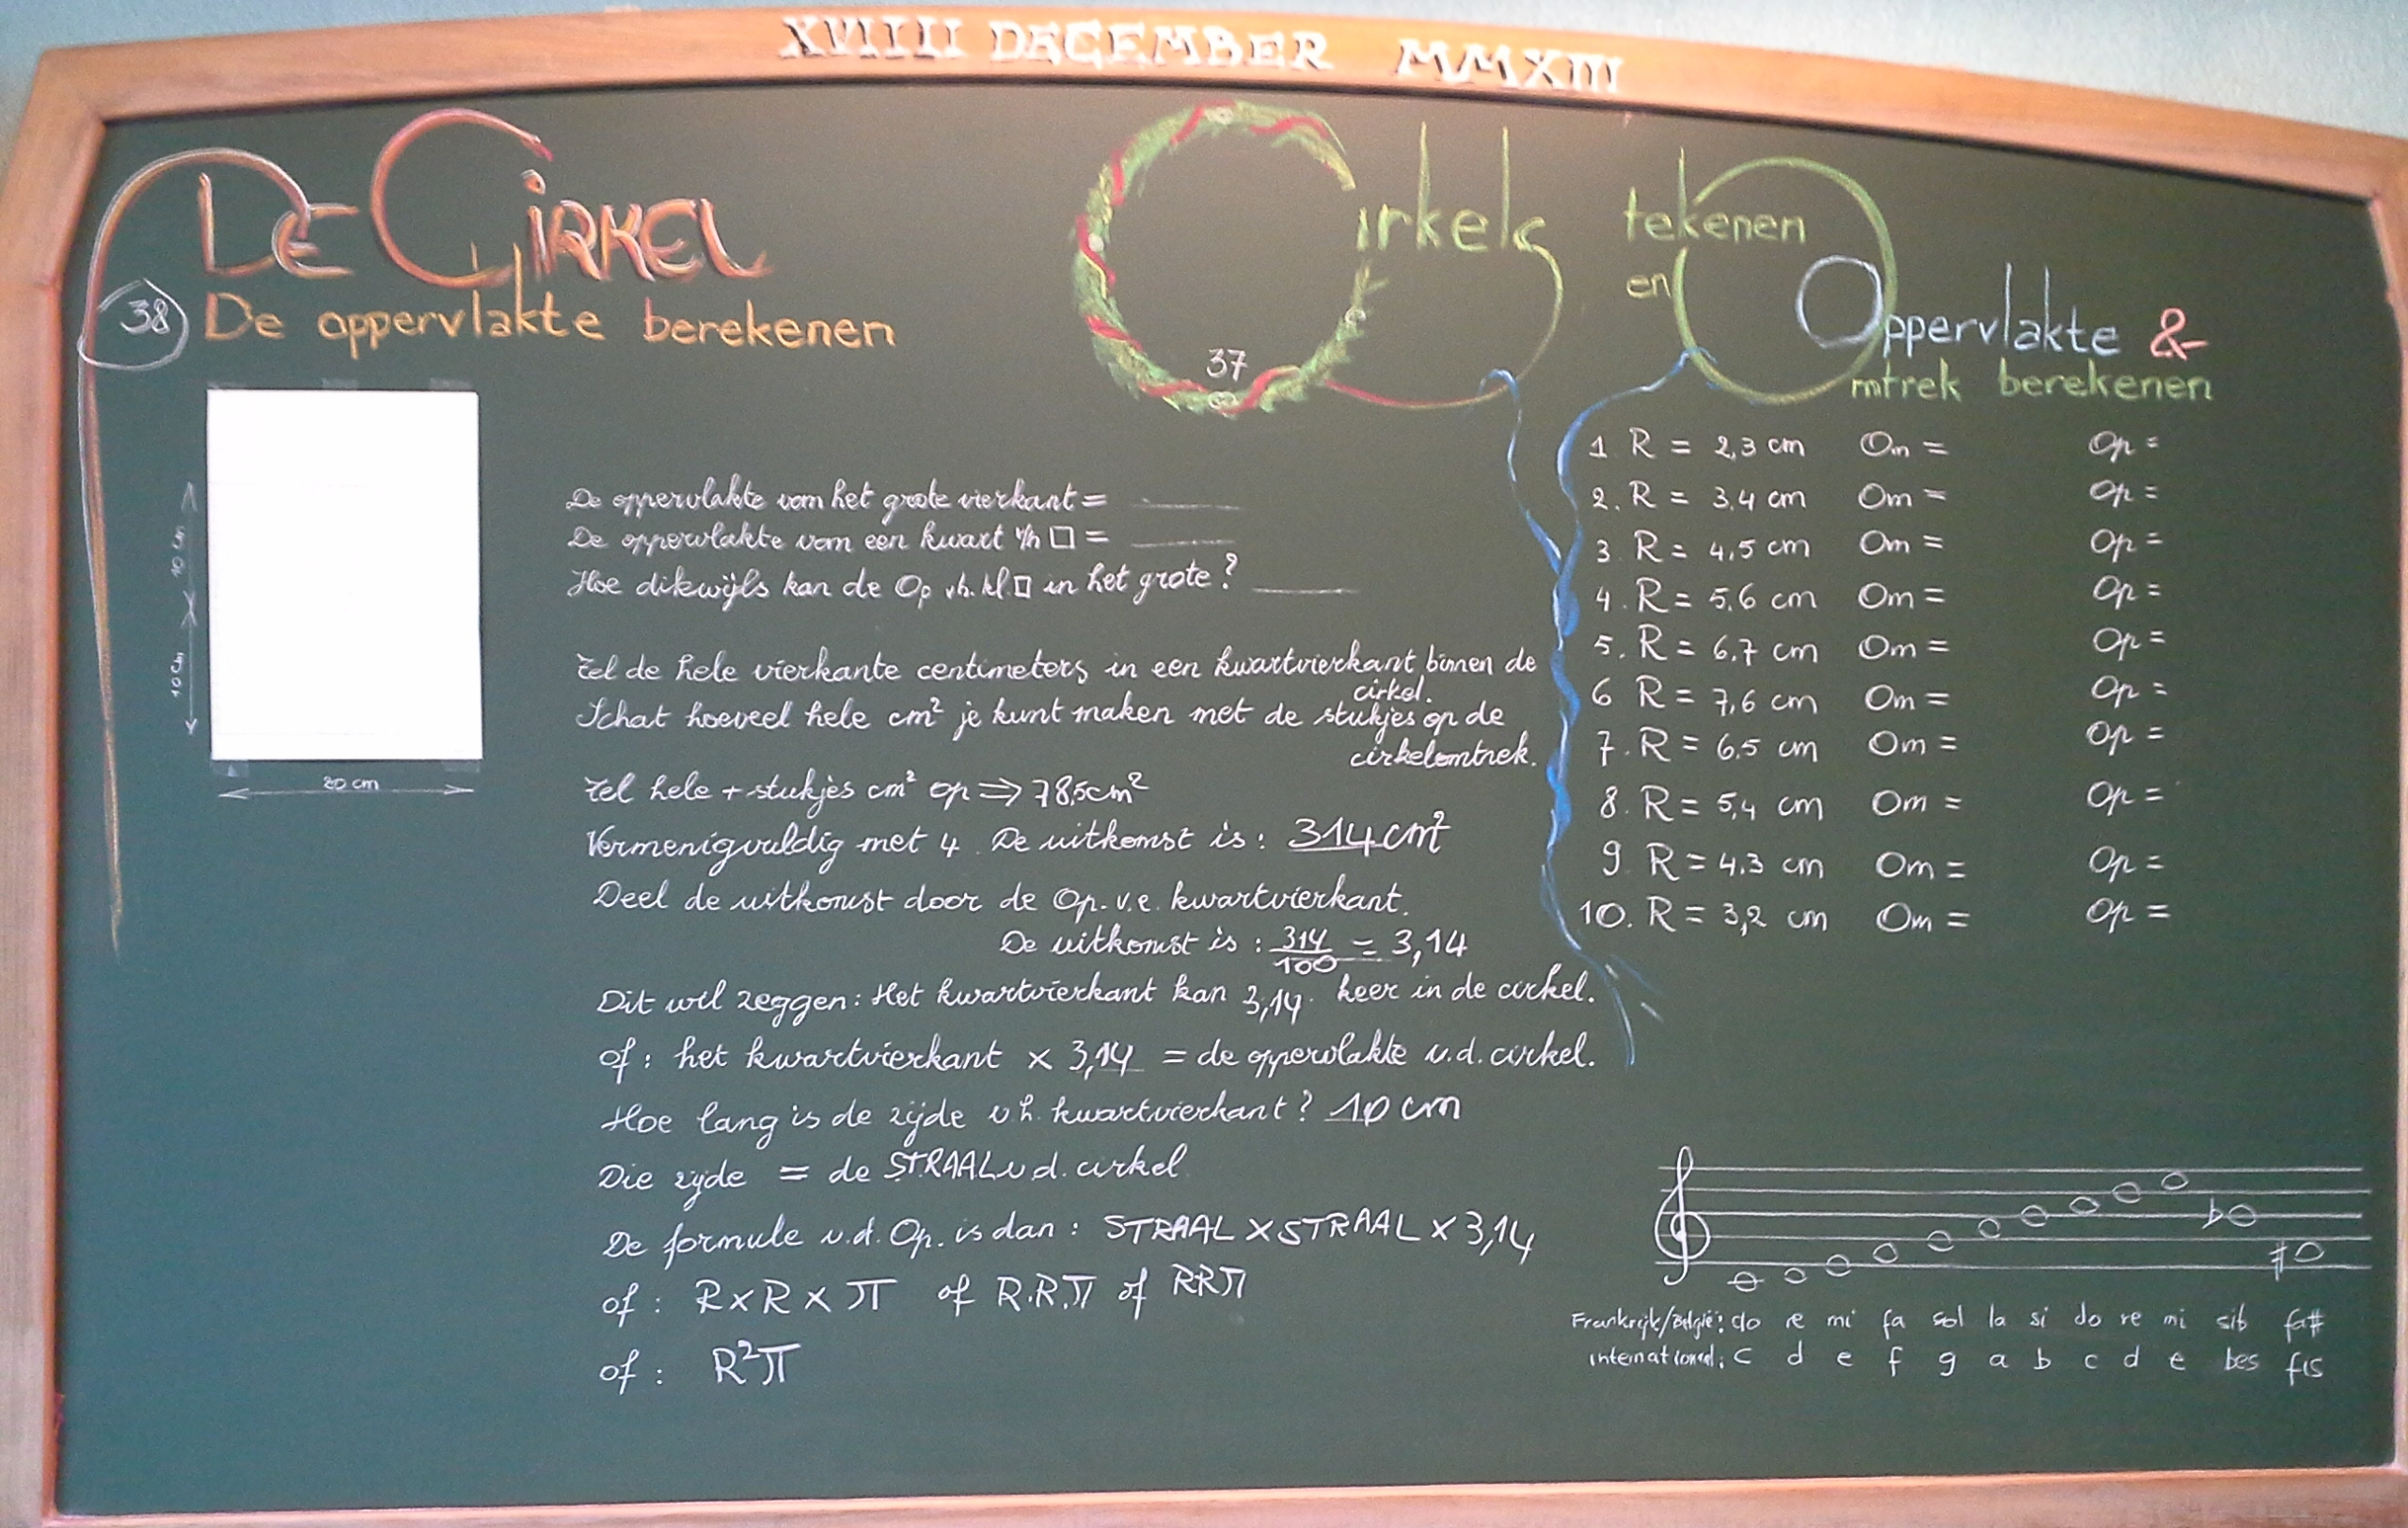 XVIIII DECEMBER MMXIII
DE CIRKEL
38 De oppervlakte berekenen
10 cm
10 cm
20 cm
De oppervlakte van het grote vierkant =
De oppervlakte van een kwart v/h □ =
Hoe dikwijls kan de Op vh. kl. □ in het grote?
Tel de hele vierkante centimeters in een kwartvierkant binnen de
cirkel.
Schat hoeveel hele cm² je kunt maken met de stukjes op de
cirkelomtrek.
Tel hele + stukjes cm² op ⇒ 78,5cm²
Vermenigvuldig met 4. De uitkomst is: 314 cm²
Deel de uitkomst door de Op. v.e. kwartvierkant.
De uitkomst is : 314/100 = 3,14
Dit wil zeggen: Het kwartvierkant kan 3,14 keer in de cirkel.
of: het kwartvierkant x 3,14 = de oppervlakte v.d. cirkel.
Hoe lang is de zijde v.h. kwartvierkant? 10 cm
Die zijde = de STRAAL v.d. cirkel
De formule v.d. Op. is dan: STRAAL x STRAAL x 3,14
of: R x R x π of R.R.π of RRπ
of: R²π
Cirkels tekenen
37
en Oppervlakte &
Omtrek berekenen
1. R = 2,3 cm Om = Op =
2. R = 3,4 cm Om = Op =
3. R = 4,5 cm Om = Op =
4. R = 5,6 cm Om = Op =
5. R = 6,7 cm Om = Op =
6 R = 7,6 cm Om = Op =
7. R = 6,5 cm Om = Op =
8. R = 5,4 cm Om = Op =
9 R = 4,3 cm Om = Op =
10. R = 3,2 cm Om = Op =
Frankrijk/België: do re mi fa sol la si do re mi sib fa#
international: c d e f g a b c d e bes fis